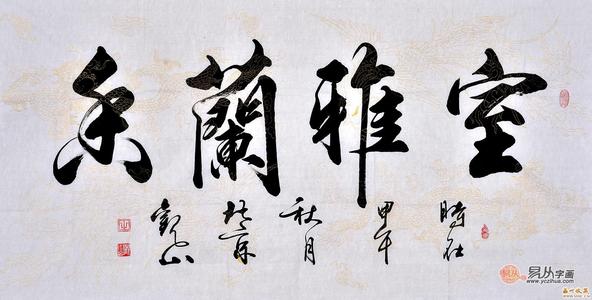 室雅蘭香
時在甲午秋月
易从字画
www.yczihua.com